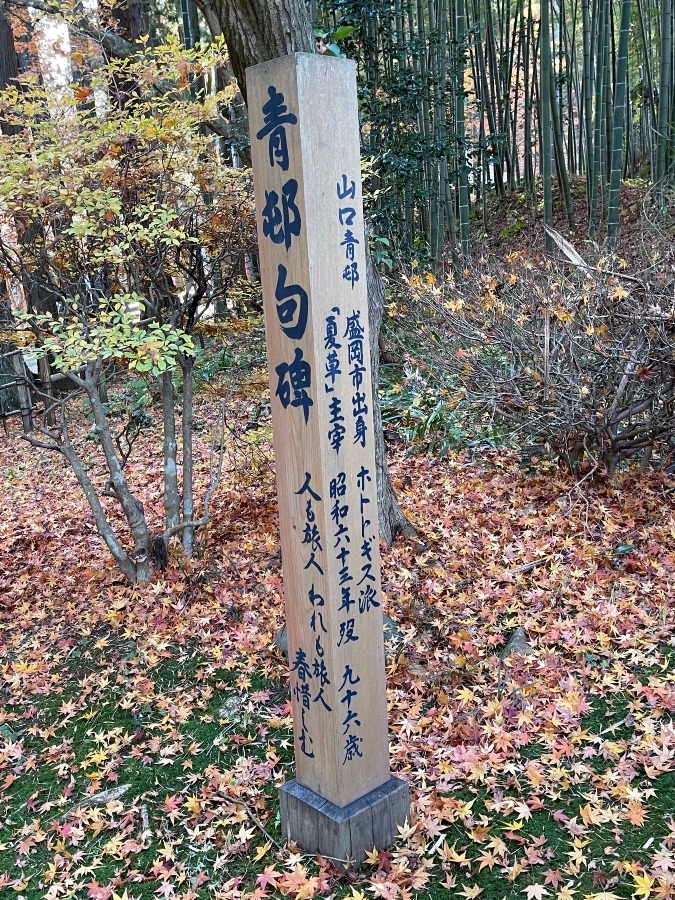 青邨句碑
山口青邨　盛岡市出身　ホトトギス派
「夏草」主宰　昭和六十三年歿　九十六歳
人も旅人　われも旅人
春惜しむ